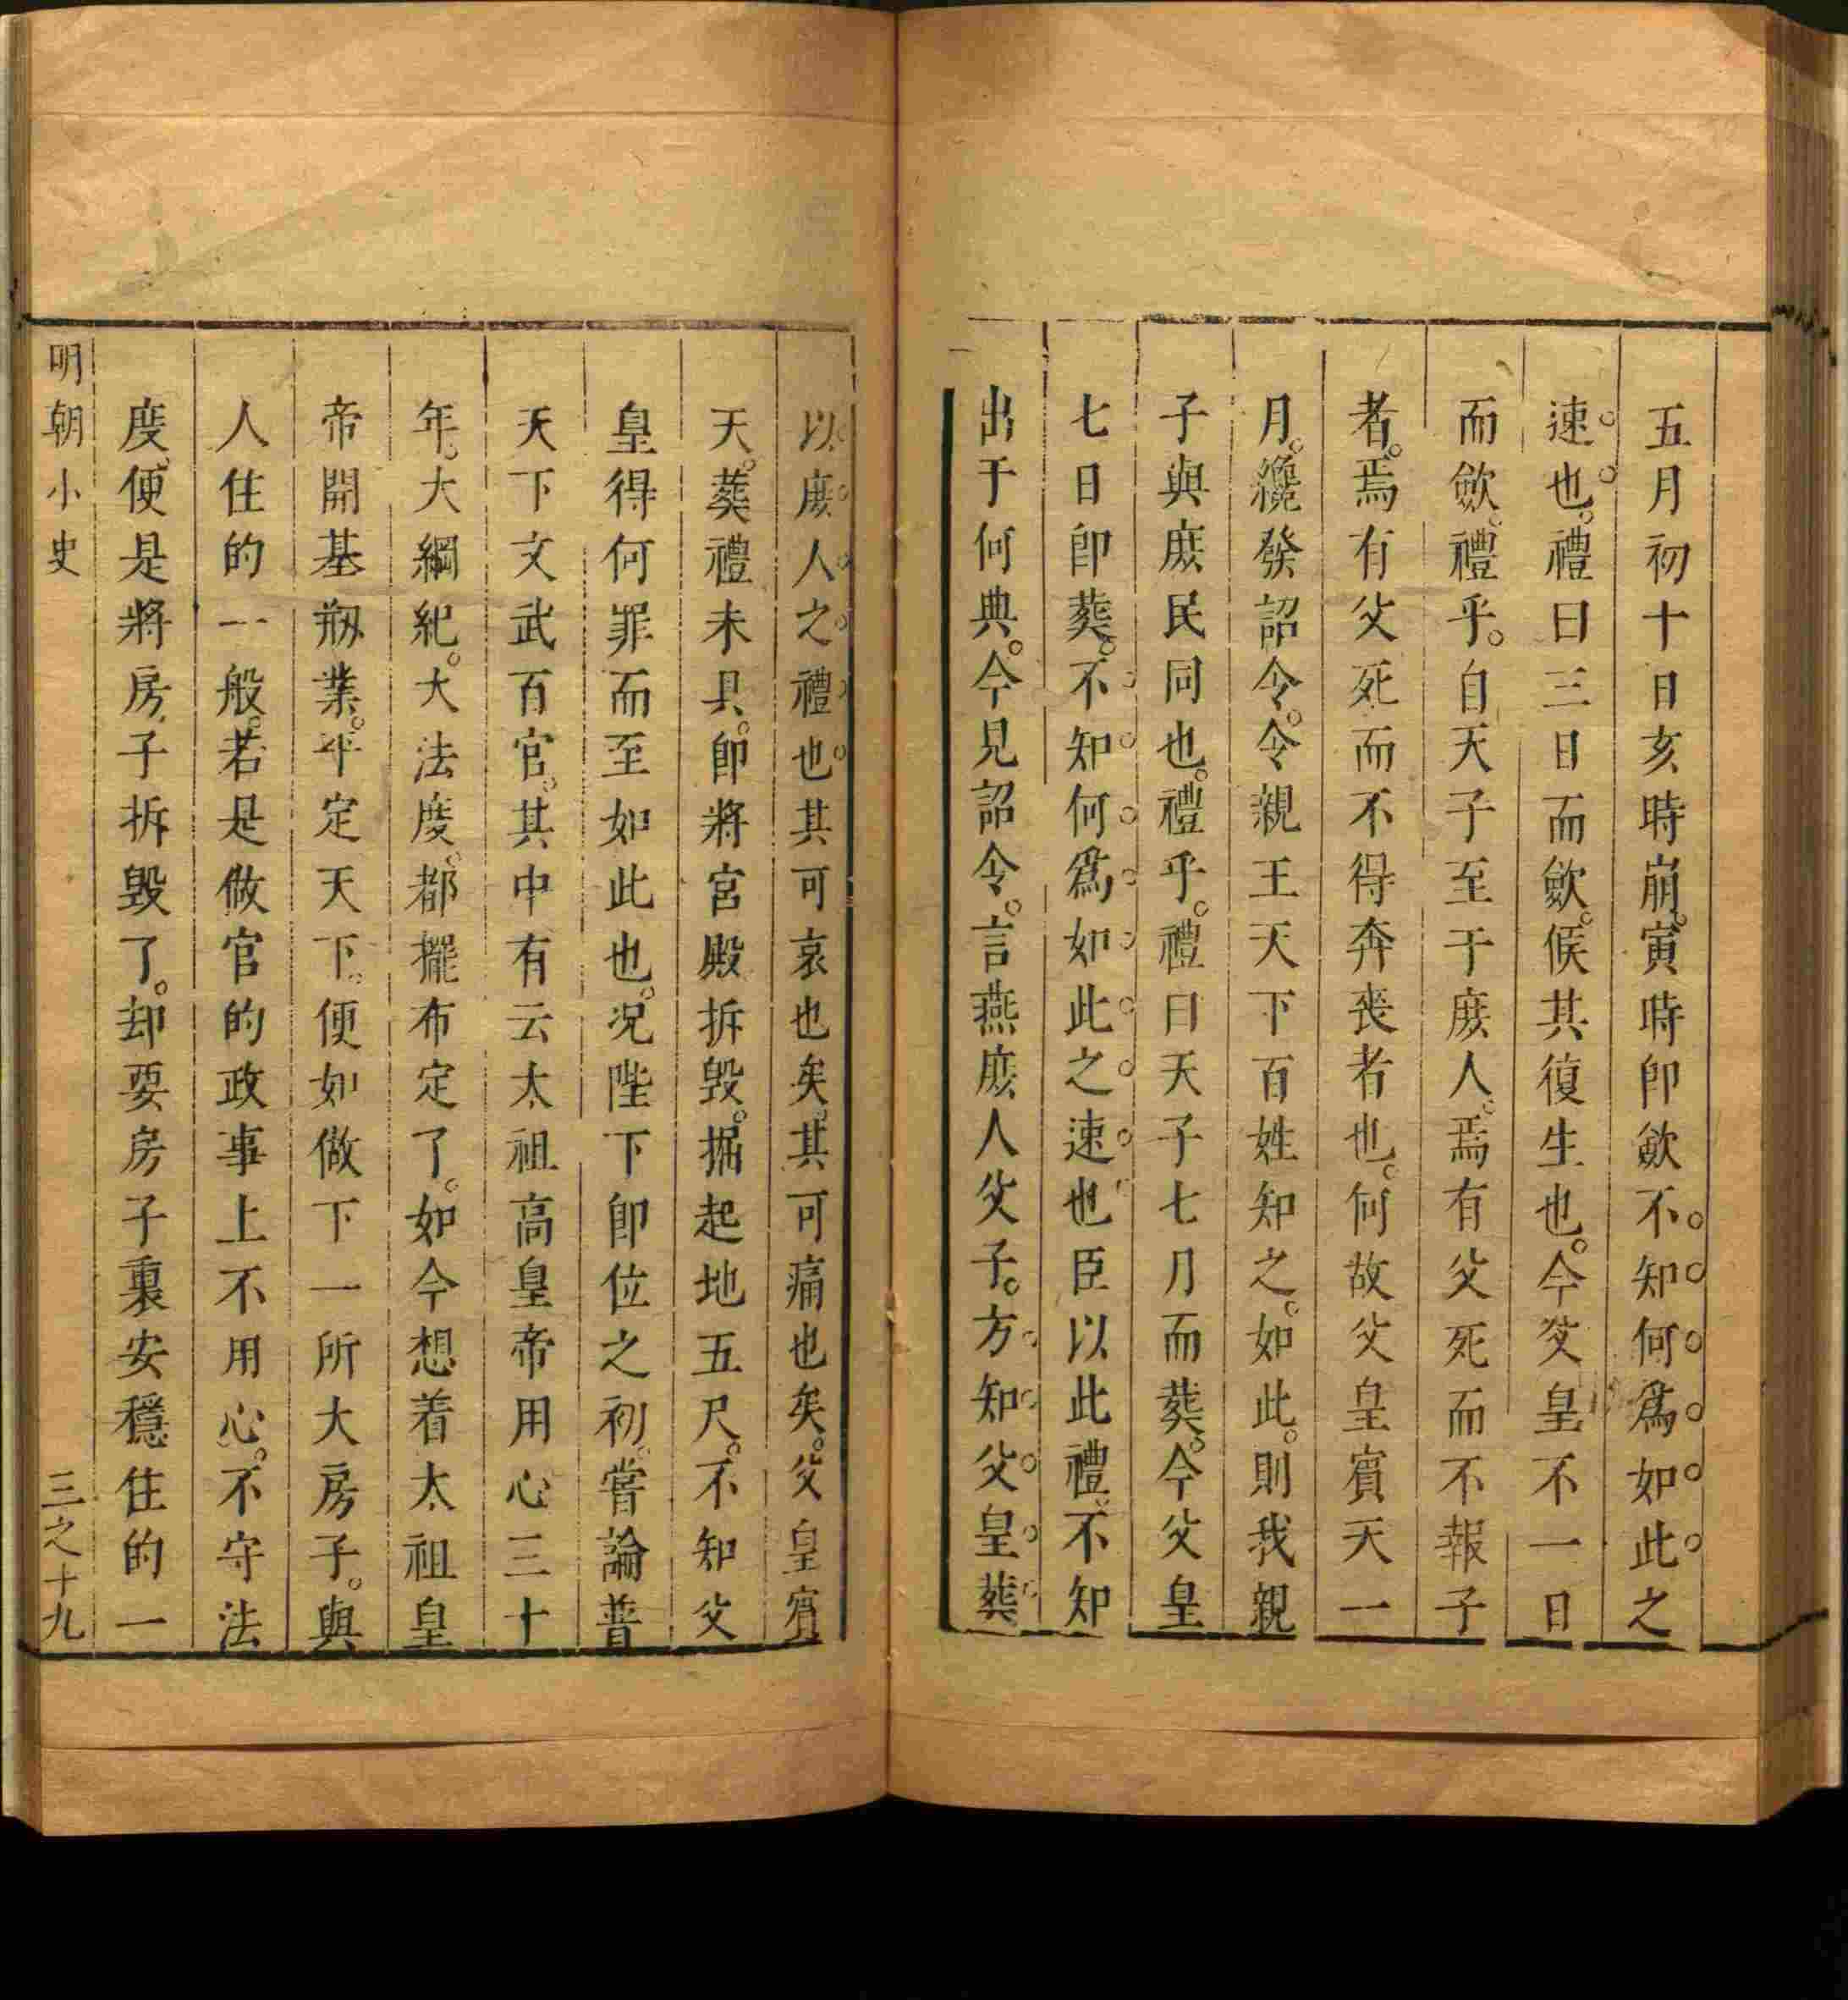 五月初十日亥時崩。寅時即歛。不知何爲如此之
速也。禮曰三日而歛。候其復生也。今父皇不一日
而歛。禮乎。自天子至于庶人。焉有父死而不報子
者。焉有父死而不得奔喪者也。何故父皇賓天一
月。纔發詔令。令親王天下百姓知之。如此。則我親
子與庶民同也。禮乎。禮曰天子七月而葬。今父皇
七日即葬。不知何爲如此之速也臣以此禮。不知
出于何典。今見詔令。言燕庶人父子。方知父皇葬
以庶人之禮也其可哀也矣。其可痛也矣。父皇賓
天。葬禮未具。即將宮殿拆毀。掘起地五尺。不知父
皇得何罪而至如此也。况陛下即位之初。嘗論普
天下文武百官。其中有云太祖高皇帝用心三十
年。大綱紀。大法度。都擺布定了。如今想着太祖皇
帝開基剏業。平定天下。便如做下一所大房子。與
人住的一般。若是做官的政事上不用心。不守法
度。便是將房子拆毀了。却要房子裏安穩住的一
明朝小史
三之十九